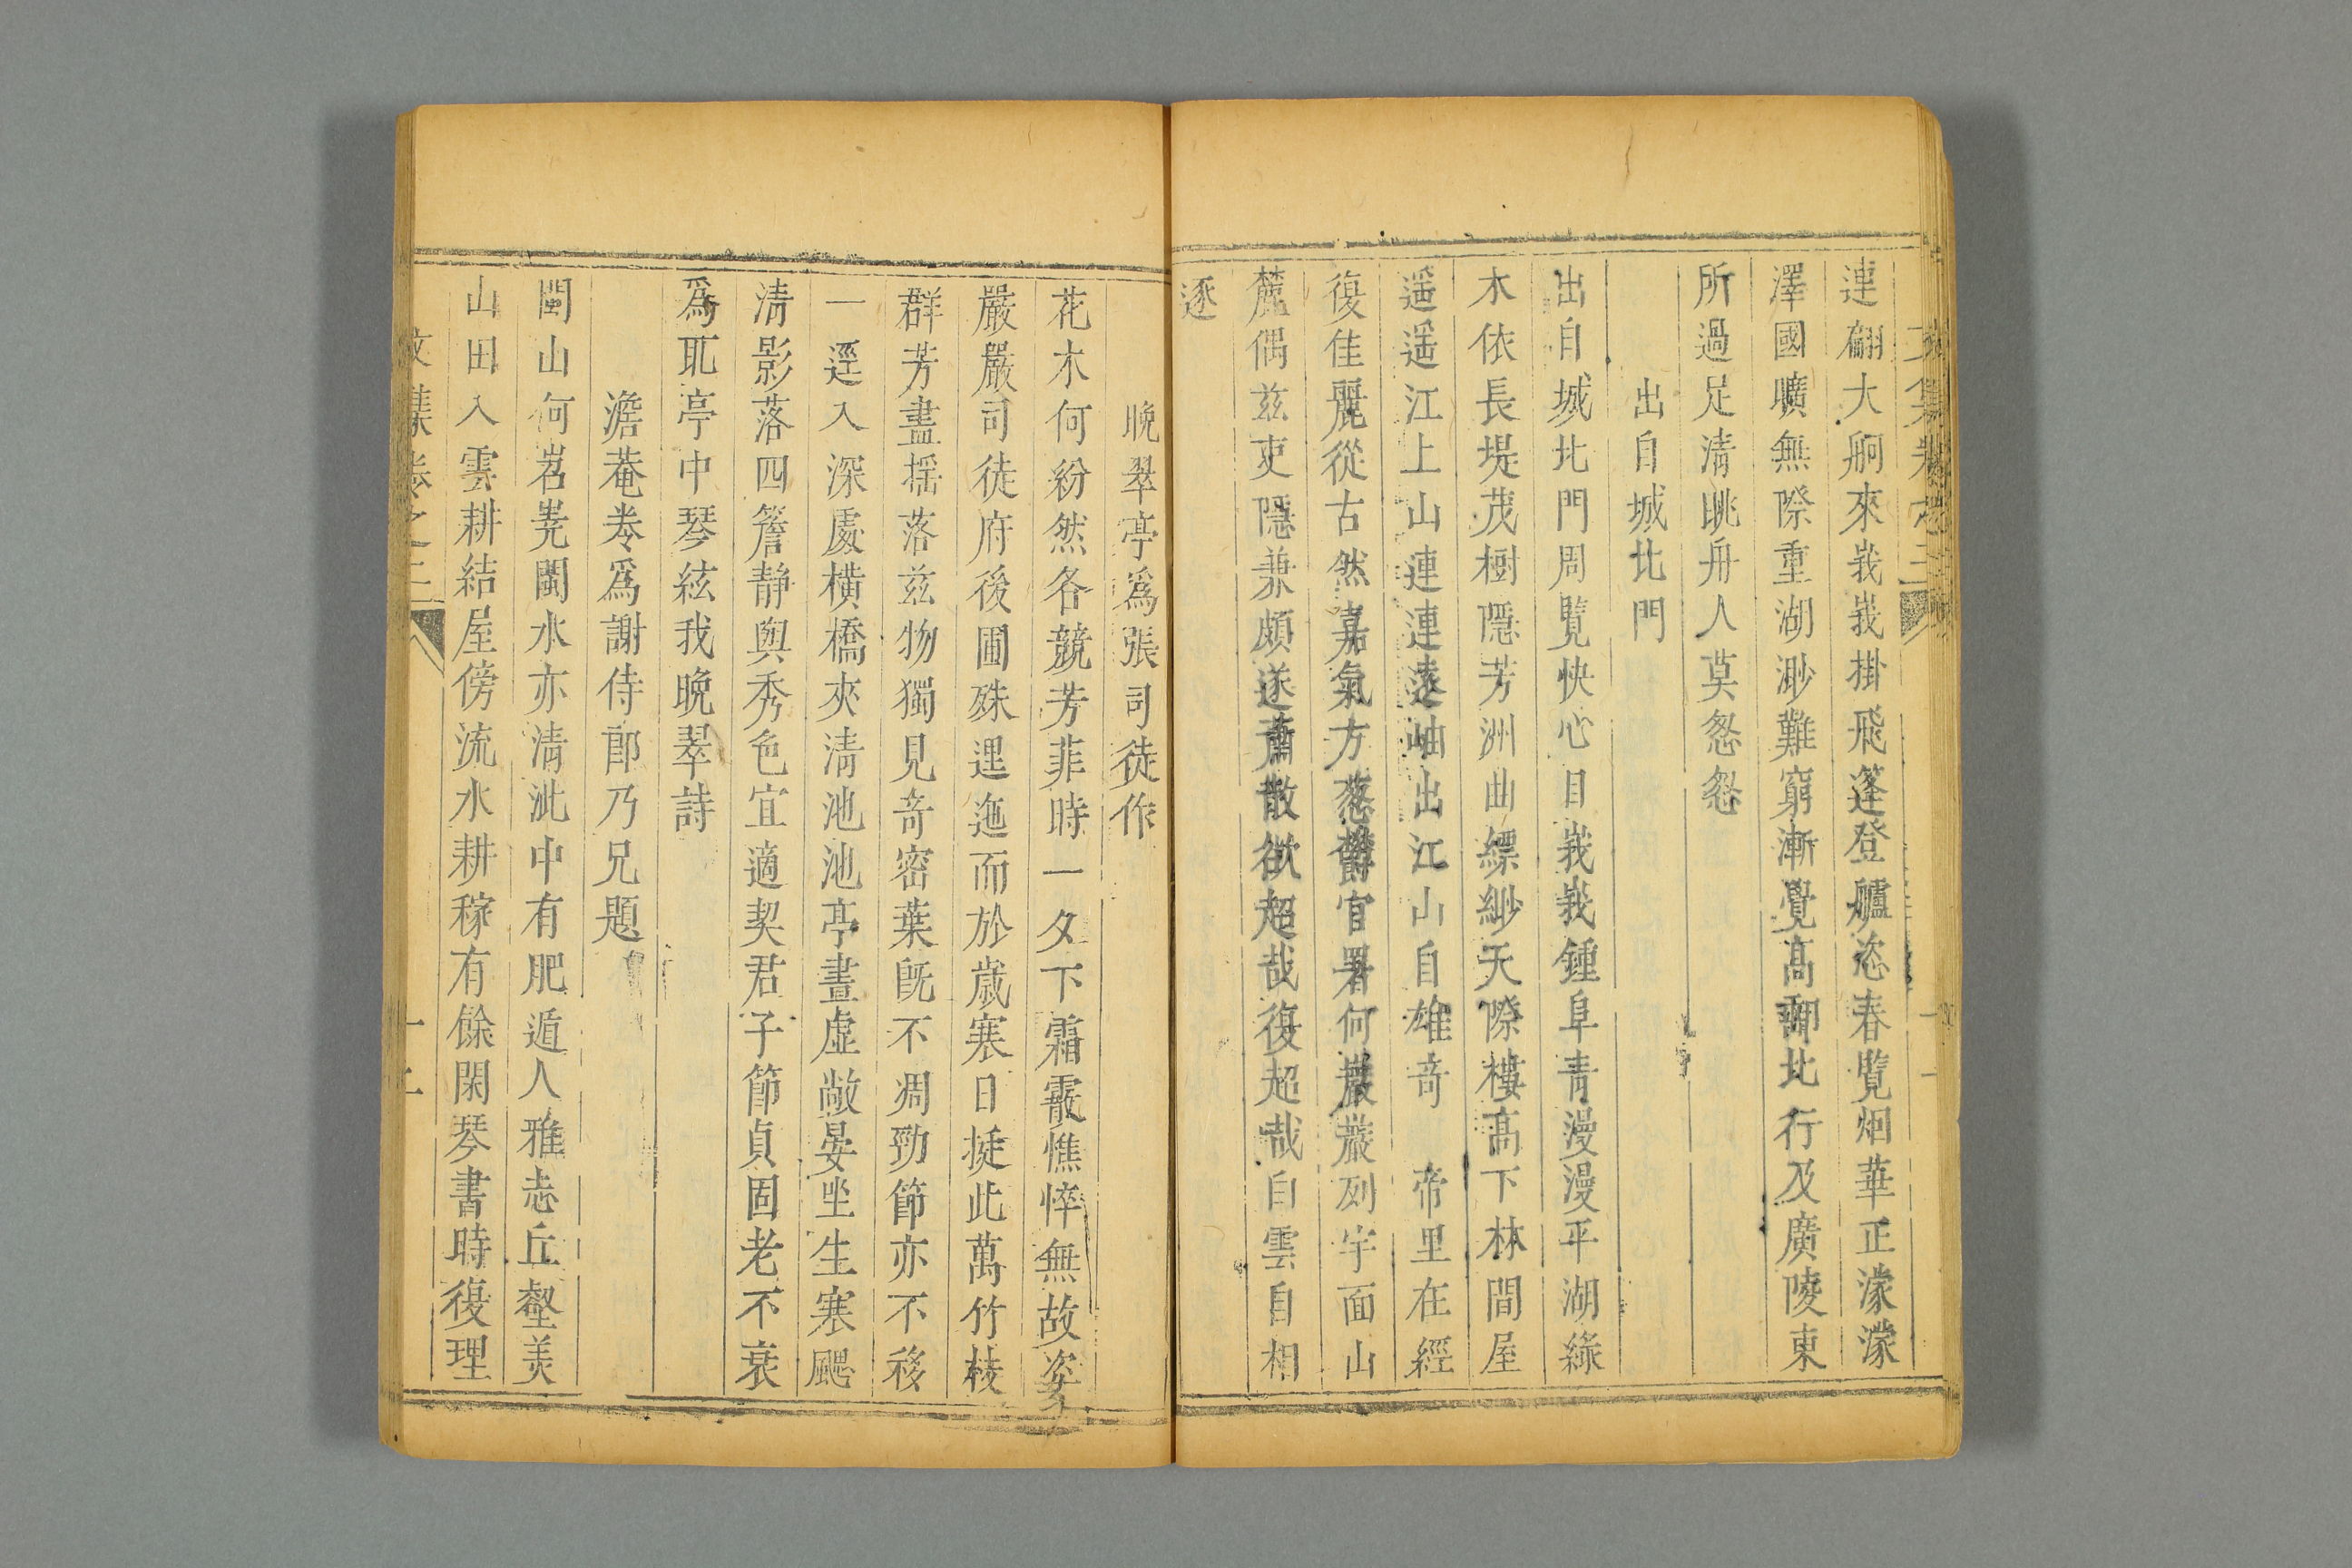 連翩大舸來峩峩掛飛篷登艫恣春覧烟華正濛濛
澤國曠無際重湖渺難窮漸覺高郵北行及廣陵東
所過足清眺舟人莫怱怱
出自城北門
出自城北門周覧快心目峩峩鍾阜青漫漫平湖綠
木依長堤茂樹隱芳洲曲縹緲天際樓高下林間屋
遥遥江上山連連遠岫出江山自雄竒 帝里在經
復佳麗從古然嘉氣方葱欝官署何嚴嚴列宇面山
麓偶兹吏隱兼頗遂蕭散欲超哉復超哉白雲自相
逐
晚翠亭爲張司徒作
花木何紛然各競芳菲時一夕下霜霰憔悴無故姿
嚴嚴司徒府後圃殊逞迤而於歲寒日挺此萬竹枝
群芳盡揺落兹物獨見竒密葉旣不凋勁節亦不移
一逕入深處橫橋夾清池池亭晝虛敞晏坐生寒颸
清影落四簷静與秀色宜適契君子節貞固老不衰
爲耴亭中琴絃我晚翠詩
澹菴卷爲謝侍郎乃兄題
閩山何岧嶤閩水亦清泚中有肥遁人雅志丘壑美
山田入雲耕結屋傍流水耕稼有餘閑琴書時復理
文集卷之三